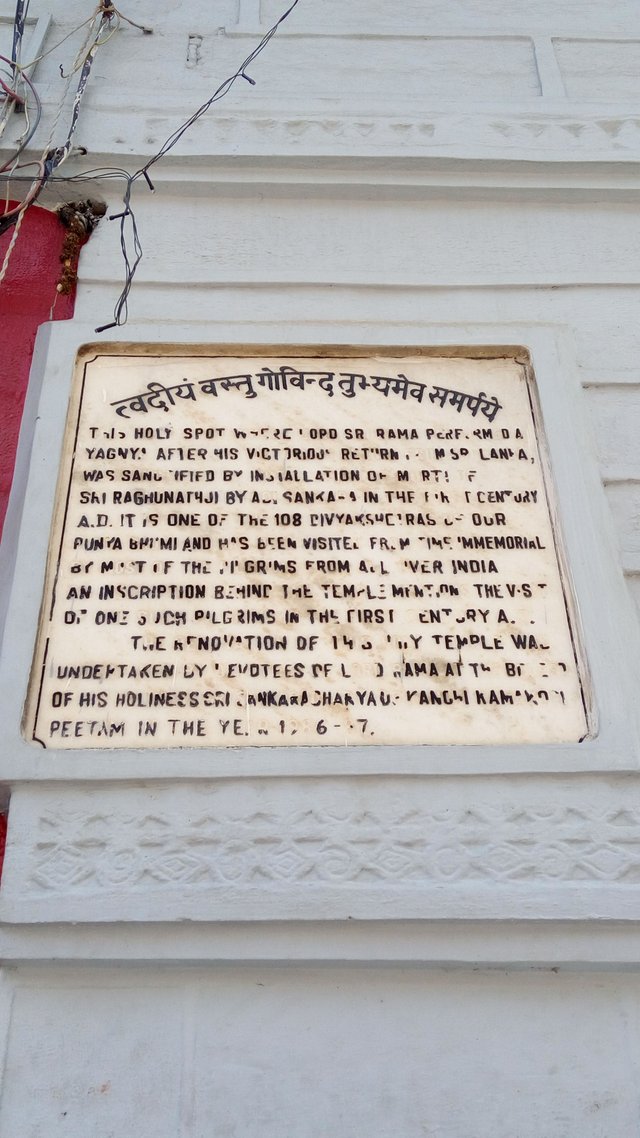 त्वदीयं वस्तु गोविन्द तुभ्यमेव समर्पये
THIS HOLY SPOT WHERE LORD SRI RAMA PERFORMED A
YAGNYA AFTER HIS VICTORIOUS RETURN FROM SRI LANKA,
WAS SANCTIFIED BY INSTALLATION OF MURTI OF
SRI RAGHUNATHJI BY ADI SANKARA IN THE FIRST CENTURY
A.D. IT IS ONE OF THE 108 DIVYAKSHETRAS OF OUR
PUNYA BHUMI AND HAS BEEN VISITED FROM TIME IMMEMORIAL
BY MOST OF THE PILGRIMS FROM ALL OVER INDIA
AN INSCRIPTION BEHIND THE TEMPLE MENTIONS THE VISIT
OF ONE SUCH PILGRIMS IN THE FIRST CENTURY A.D.
THE RENOVATION OF THIS HOLY TEMPLE WAS
UNDERTAKEN BY DEVOTEES OF LORD RAMA AT THE
OF HIS HOLINESS SRI SANKARACHARYA OF KANCHI KAMAKOTI
PEETAM IN THE YEAR